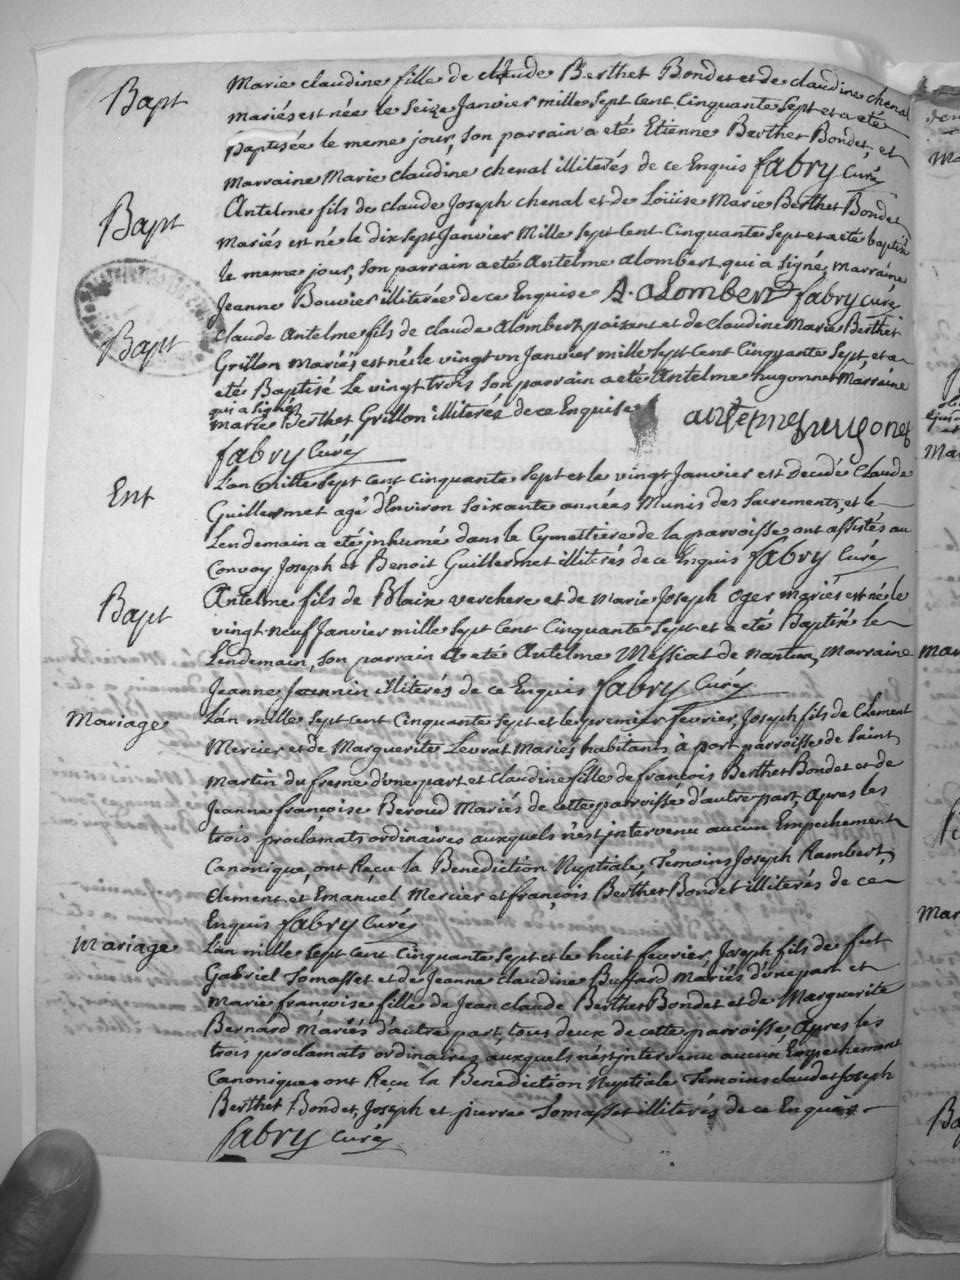 Bapt
Marie claudine fille de claude Berthet Bondet et de claudine chenal
Mariés est née le Seize Janvier mille Sept Cent Cinquante Sept et a eté
Baptisée le meme jour, Son parrain a eté Etienne Berthet Bondet, et
Marraine Marie claudine chenal illiterés de ce Enquis fabry Curé
Bapt
Antelme fils de claude Joseph chenal et de Loüise Marie Berthet Bondet
Mariés est né le dix sept Janvier Mille Sept Cent Cinquante Sept et a eté baptisé
le meme jour, Son parrain a eté Antelme alombert qui a Signé, marraine
Jeanne Bouvier illiterée de ce Enquise A. aLombert fabry curé
Bapt
Claude Antelme fils de claude alombert paisant et de claudine Marie Berthet
Grillon Mariés est né le vingt un Janvier mille Sept Cent Cinquante Sept, et a
eté Baptisé Le vingt trois Son parrain a eté Antelme hugonnet Marraine
qui a Signés
marie Berthet Grillon illiterés de ce Enquise
fabry Curé
Ent
L'an Mille Sept Cent Cinquante Sept et le vingt Janvier est Decedé Claude
Guillermet agé d'Environ Soixante années Munis des Sacrements, et le
Lendemain a eté inhumé dans le Cymettiere de la parroisse ont assistés au
Convoy Joseph et Benoit Guillermet illiterés de ce Enquis fabry Curé
Bapt
Antelme fils de Blaix verchere et de Marie Joseph Oger mariés est né le
vingt Neuf Janvier mille Sept Cent Cinquante Sept et a eté Baptisé le
Lendemain, Son parrain a eté Antelme Messiat de nantua, Marraine
Jeanne Jeannin illiterés de ce Enquis fabry Curé
Mariage
L'an mille Sept Cent Cinquante Sept et le premier fevrier, Joseph fils de Clement
Mercier et de Marguerite Levrat Mariés habitants à port parroisse de Saint
Martin du fresne d'une part et Claudine fille de françois Berthet Bondet et de
Jeanne françoise Beroud Mariés de cette parroisse d'autre part, Apres les
trois proclamats ordinaires auxquels n'est intervenu aucun Empechement
Canonique ont Reçu la Benediction Nuptiale, Temoins Joseph Rambert,
Clement et Emanuel Mercier et françois Berthet Bondet illiterés de ce
Enquis fabry Curé
Mariage
L'an mille Sept Cent Cinquante Sept et le huit fevrier, Joseph fils de fut
Gabriel Tomasset et de Jeanne claudine Buffard Mariés d'une part et
Marie françoise fille de Jean claude Berthet Bondet et de Marguerite
Bernard Mariés d'autre part, tous deux de cette parroisse, Apres les
trois proclamats ordinaires auxquels n'est intervenu aucun Empechement
Canonique ont Reçu la Benediction Nuptiale Temoins claude Joseph
Berthet Bondet, Joseph et pierre Tomasset illiterés de ce Enquis
fabry Curé